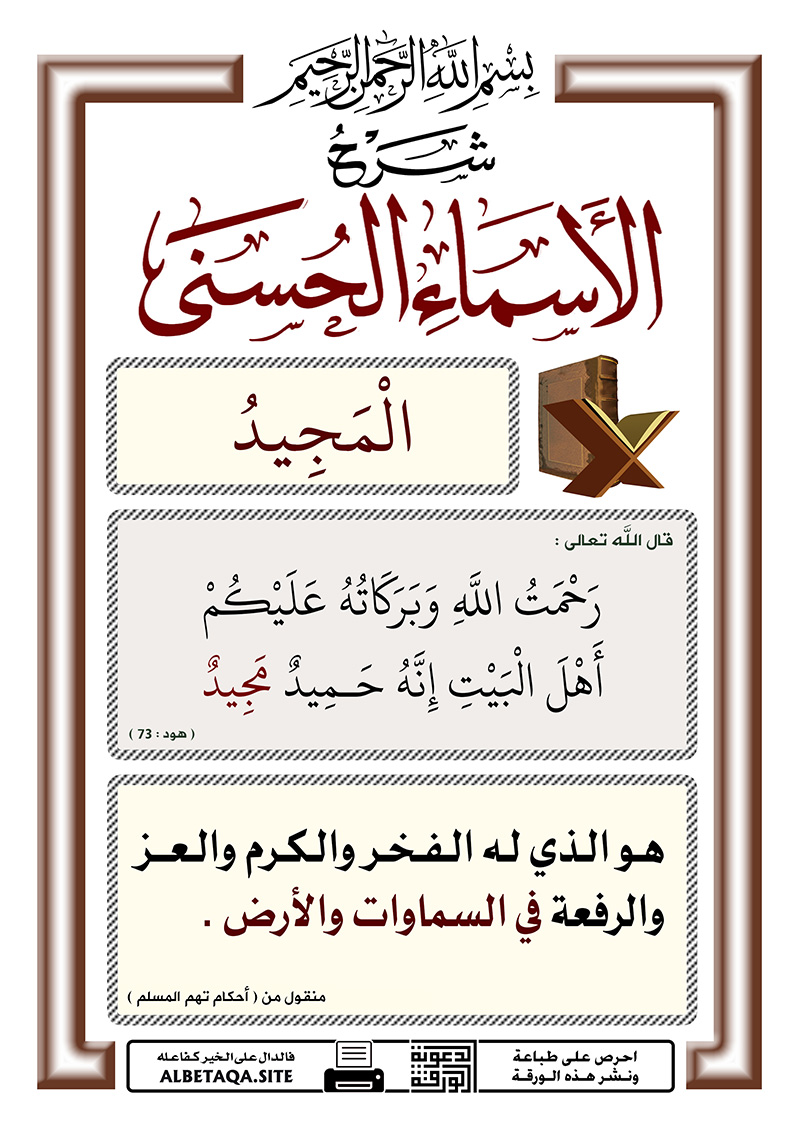 بِسْمِ اللَّهِ الرَّحْمَنِ الرَّحِيمِ
شَرْحُ
الأَسْمَاءِ الحُسْنَى
الْمَجِيدُ
قال اللَّه تعالى :
رَحْمَتُ اللَّهِ وَبَرَكَاتُهُ عَلَيْكُمْ
أَهْلَ الْبَيْتِ إِنَّهُ حَمِيدٌ مَجِيدٌ
( هود : 73 )
هو الذي له الفخر والكرم والعز
والرفعة في السماوات والأرض .
منقول من ( أحكام تهم المسلم )
احرص على طباعة
ونشر هذه الورقة
الورقة
الدعوية
فالدال على الخير كفاعله
ALBETAQA.SITE